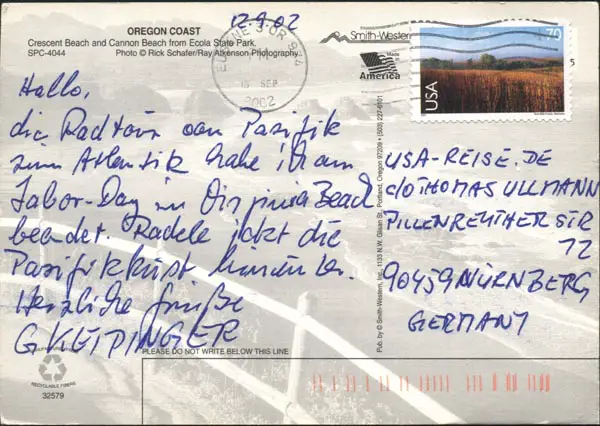 12.9.02
OREGON COAST
Crescent Beach and Cannon Beach from Ecola State Park.
SPC-4044 Photo © Rick Schafer/Ray Atkenson Photography
Smith-Western
Made in
America
EUGENE OR 974
15 SEP
2002
70
USA
5
Hallo,
die Radtour vom Pazifik
zum Atlantik habe ich am
Labor-Day in Virginia Beach
beendet. Radele jetzt die
Pazifikküste hinunter.
Herzliche Grüße
G KEIPINGER
Pub. by © Smith-Western, Inc., 1133 N.W. Glisan St., Portland, Oregon 97209 • (503) 227-6101
USA-REISE.DE
c/o THOMAS ULLMANN
PILLENREUTHER STR
72
90459 NÜRNBERG
GERMANY
PLEASE DO NOT WRITE BELOW THIS LINE
RECYCLABLE FIBERS
32579